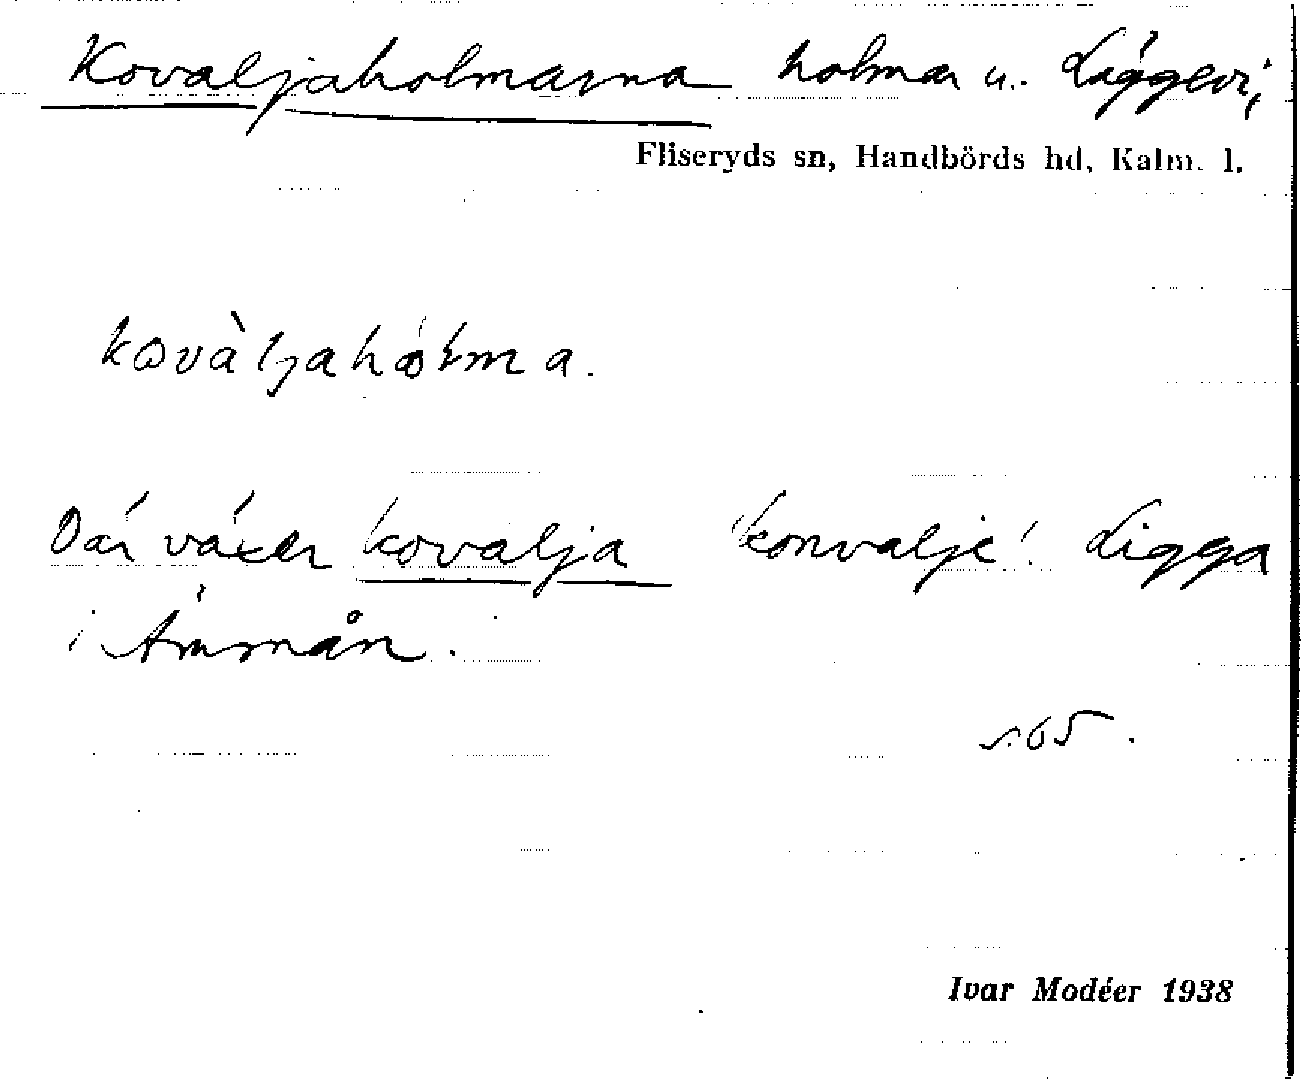 Kovaljaholmarna holmar u. Läggevi,
Fliseryds sn, Handbörds hd, Kalm. l.
kovàljahólma.
Där växer kovalja 'konvalje'. Ligga
i Ämmån.
s. 65.
Ivar Modéer 1938